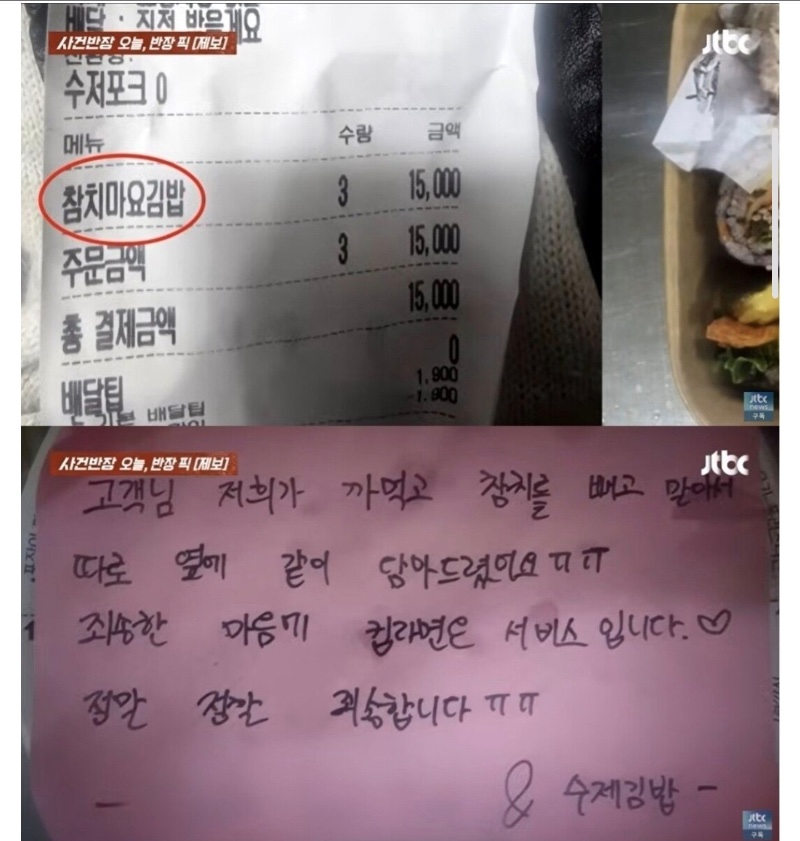 배달 : 직접 받을게요
사건반장 오늘, 반장 픽 [제보]
jtbc
수저포크 0
메뉴 수량 금액
참치마요김밥 3 15,000
주문금액 3 15,000
총 결제금액 15,000
배달팁 0
배달팁 1,900
-1,900
jtbc
news
구독
사건반장 오늘, 반장 픽 [제보]
jtbc
고객님 저희가 까먹고 참치를 빼고 말아서
따로 옆에 같이 담아드렸어요ㅠㅠ
죄송한 마음에 컵라면은 서비스 입니다.♡
정말 정말 죄송합니다ㅠㅠ
& 수제김밥 -
jtbc
news
구독